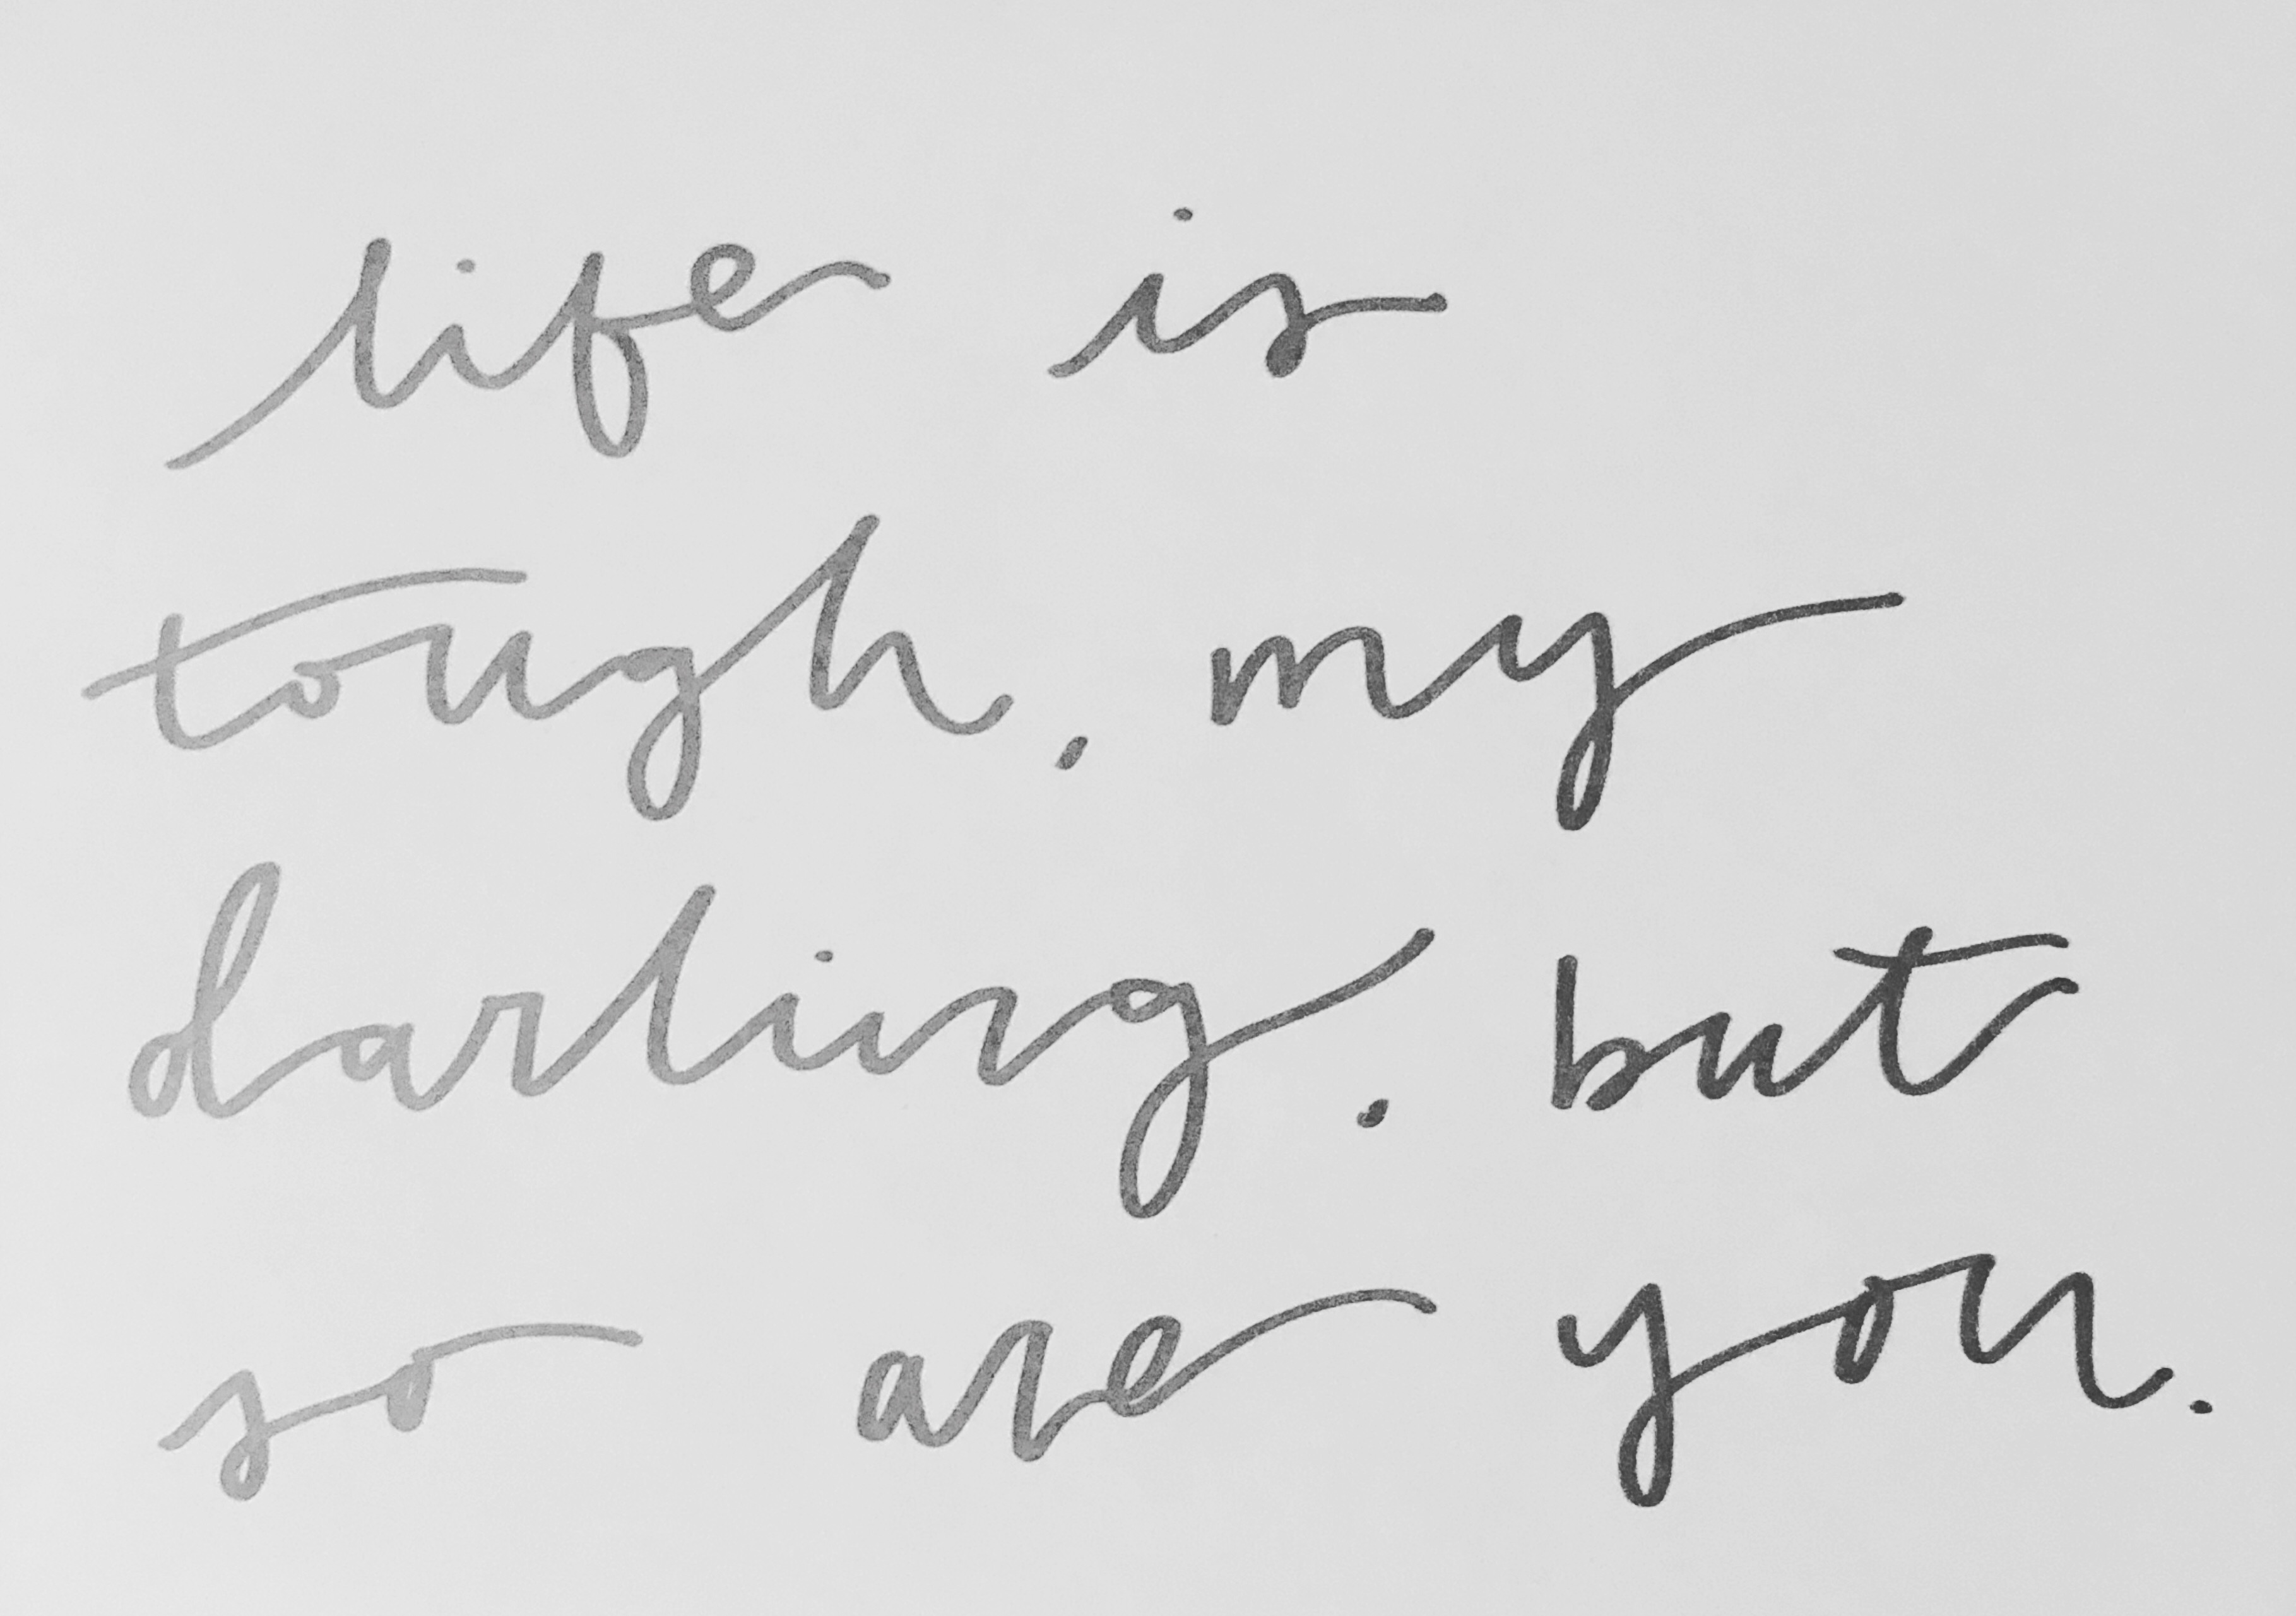 life is
tough, my
darling, but
so are you.